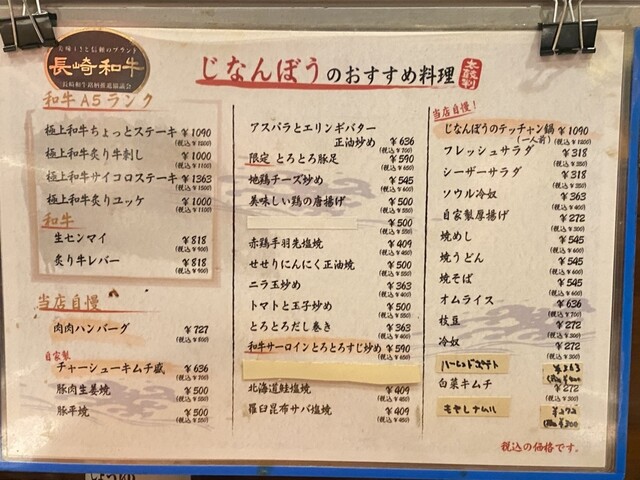 長崎和牛
じなんぼうのおすすめ料理
和牛A5ランク
極上和牛ちょっとステーキ ¥1090
(税込¥1200)
極上和牛炙り牛刺し ¥1000
(税込¥1100)
極上和牛サイコロステーキ ¥1363
(税込¥1500)
極上和牛炙りユッケ ¥1000
(税込¥1100)
和牛
生センマイ ¥818
(税込¥900)
炙り牛レバー ¥818
(税込¥900)
当店自慢
肉肉ハンバーグ ¥727
(税込¥800)
自家製
チャーシューキムチ盛 ¥636
(税込¥700)
豚肉生姜焼 ¥500
(税込¥550)
豚平焼 ¥500
(税込¥550)
アスパラとエリンギバター
正油炒め ¥636
(税込¥700)
限定 とろとろ豚足 ¥590
(税込¥650)
地鶏チーズ炒め ¥545
(税込¥600)
美味しい鶏の唐揚げ ¥500
(税込¥550)
¥500
(税込¥550)
赤鶏手羽先塩焼 ¥409
(税込¥450)
せせりにんにく正油焼 ¥500
(税込¥550)
ニラ玉炒め ¥363
(税込¥400)
トマトと玉子炒め ¥500
(税込¥550)
とろとろだし巻き ¥363
(税込¥400)
和牛サーロインとろとろすじ炒め ¥590
(税込¥650)
北海道鮭塩焼 ¥409
(税込¥450)
羅臼昆布サバ塩焼 ¥409
(税込¥450)
当店自慢!
じなんぼうのテッチャン鍋 ¥1090
(一人前) (税込¥1200)
フレッシュサラダ ¥318
(税込¥350)
シーザーサラダ ¥318
(税込¥350)
ソウル冷奴 ¥363
(税込¥400)
自家製厚揚げ ¥272
(税込¥300)
焼めし ¥545
(税込¥600)
焼うどん ¥545
(税込¥600)
焼そば ¥545
(税込¥600)
オムライス ¥636
(税込¥700)
枝豆 ¥272
(税込¥300)
冷奴 ¥272
(税込¥300)
¥363
(税込¥400)
白菜キムチ ¥272
(税込¥300)
もやしナムル ¥272
(税込¥300)
税込の価格です。